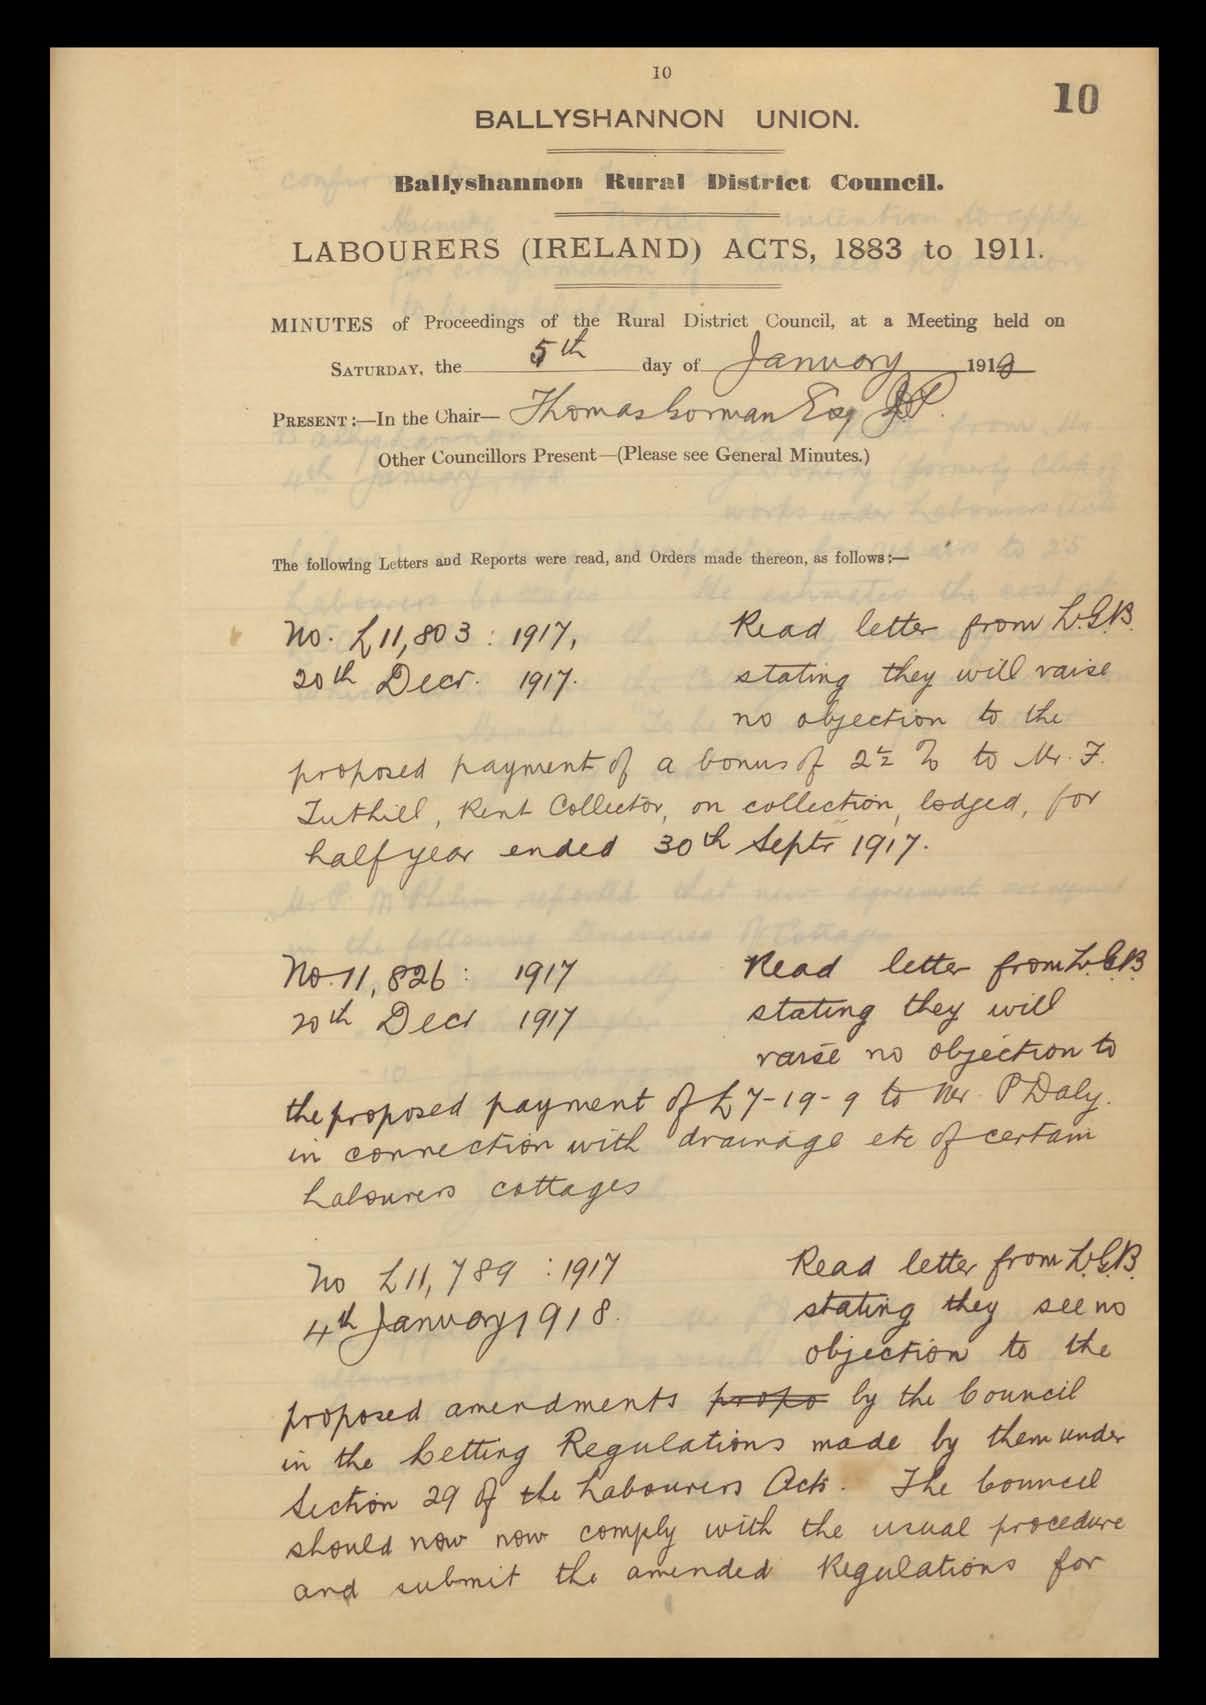 10
10
BALLYSHANNON UNION.
Ballyshannon Rural District Council.
LABOURERS (IRELAND) ACTS, 1883 to 1911.
MINUTES of Proceedings of the Rural District Council, at a Meeting held on
SATURDAY, the 5th day of January 1918
PRESENT:—In the Chair— Thomas Gorman Esq J.P.
Other Councillors Present—(Please see General Minutes.)
The following Letters and Reports were read, and Orders made thereon, as follows:—
No. L11,803 : 1917, Read letter from L.G.B.
20th Decr. 1917. stating they will raise
no objection to the
proposed payment of a bonus of 2½ % to Mr. F.
Tuthill, Rent Collector, on collection, lodged, for
half year ended 30th Septr 1917.
No. 11,826 : 1917 Read letter from L.G.B.
20th Decr 1917 stating they will
raise no objection to
the proposed payment of £7-19-9 to Mr. P Daly.
in connection with drainage etc of certain
Labourers cottages
No L11,789 : 1917 Read letter from L.G.B.
4th January 1918. stating they see no
objection to the
proposed amendments propo by the Council
in the Letting Regulations made by them under
Section 29 of the Labourers Acts. The Council
should now now comply with the usual procedure
and submit the amended Regulations for